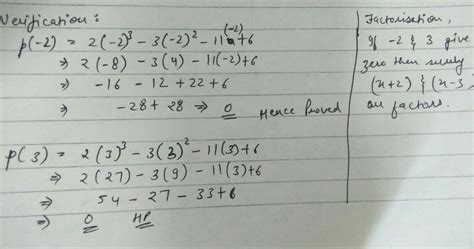 Verification :
p(-2) = 2(-2)³ - 3(-2)² - 11(-2) + 6
⇒ 2(-8) - 3(4) - 11(-2) + 6
⇒ -16 - 12 + 22 + 6
⇒ -28 + 28 ⇒ 0 Hence Proved
p(3) = 2(3)³ - 3(3)² - 11(3) + 6
⇒ 2(27) - 3(9) - 11(3) + 6
⇒ 54 - 27 - 33 + 6
⇒ 0 HP
Factorisation,
If -2 & 3 give
zero then surely
(x+2) & (x-3
are factors.